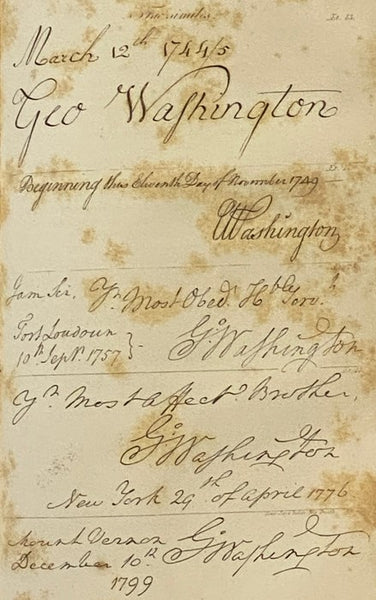 Fac similes.
March 12th 1744/5
Geo Washington
Beginning this Eleventh Day of November 1749
GWashington
I am Sir, Yr. Most Obedt. Hble Servt.
Fort Loudoun
10th Sept. 1757
Go Washington
Yr. Most Affecte. Brother,
Go Washington
New York 29th of April 1776
Mount Vernon
December 10th.
1799
Go Washington